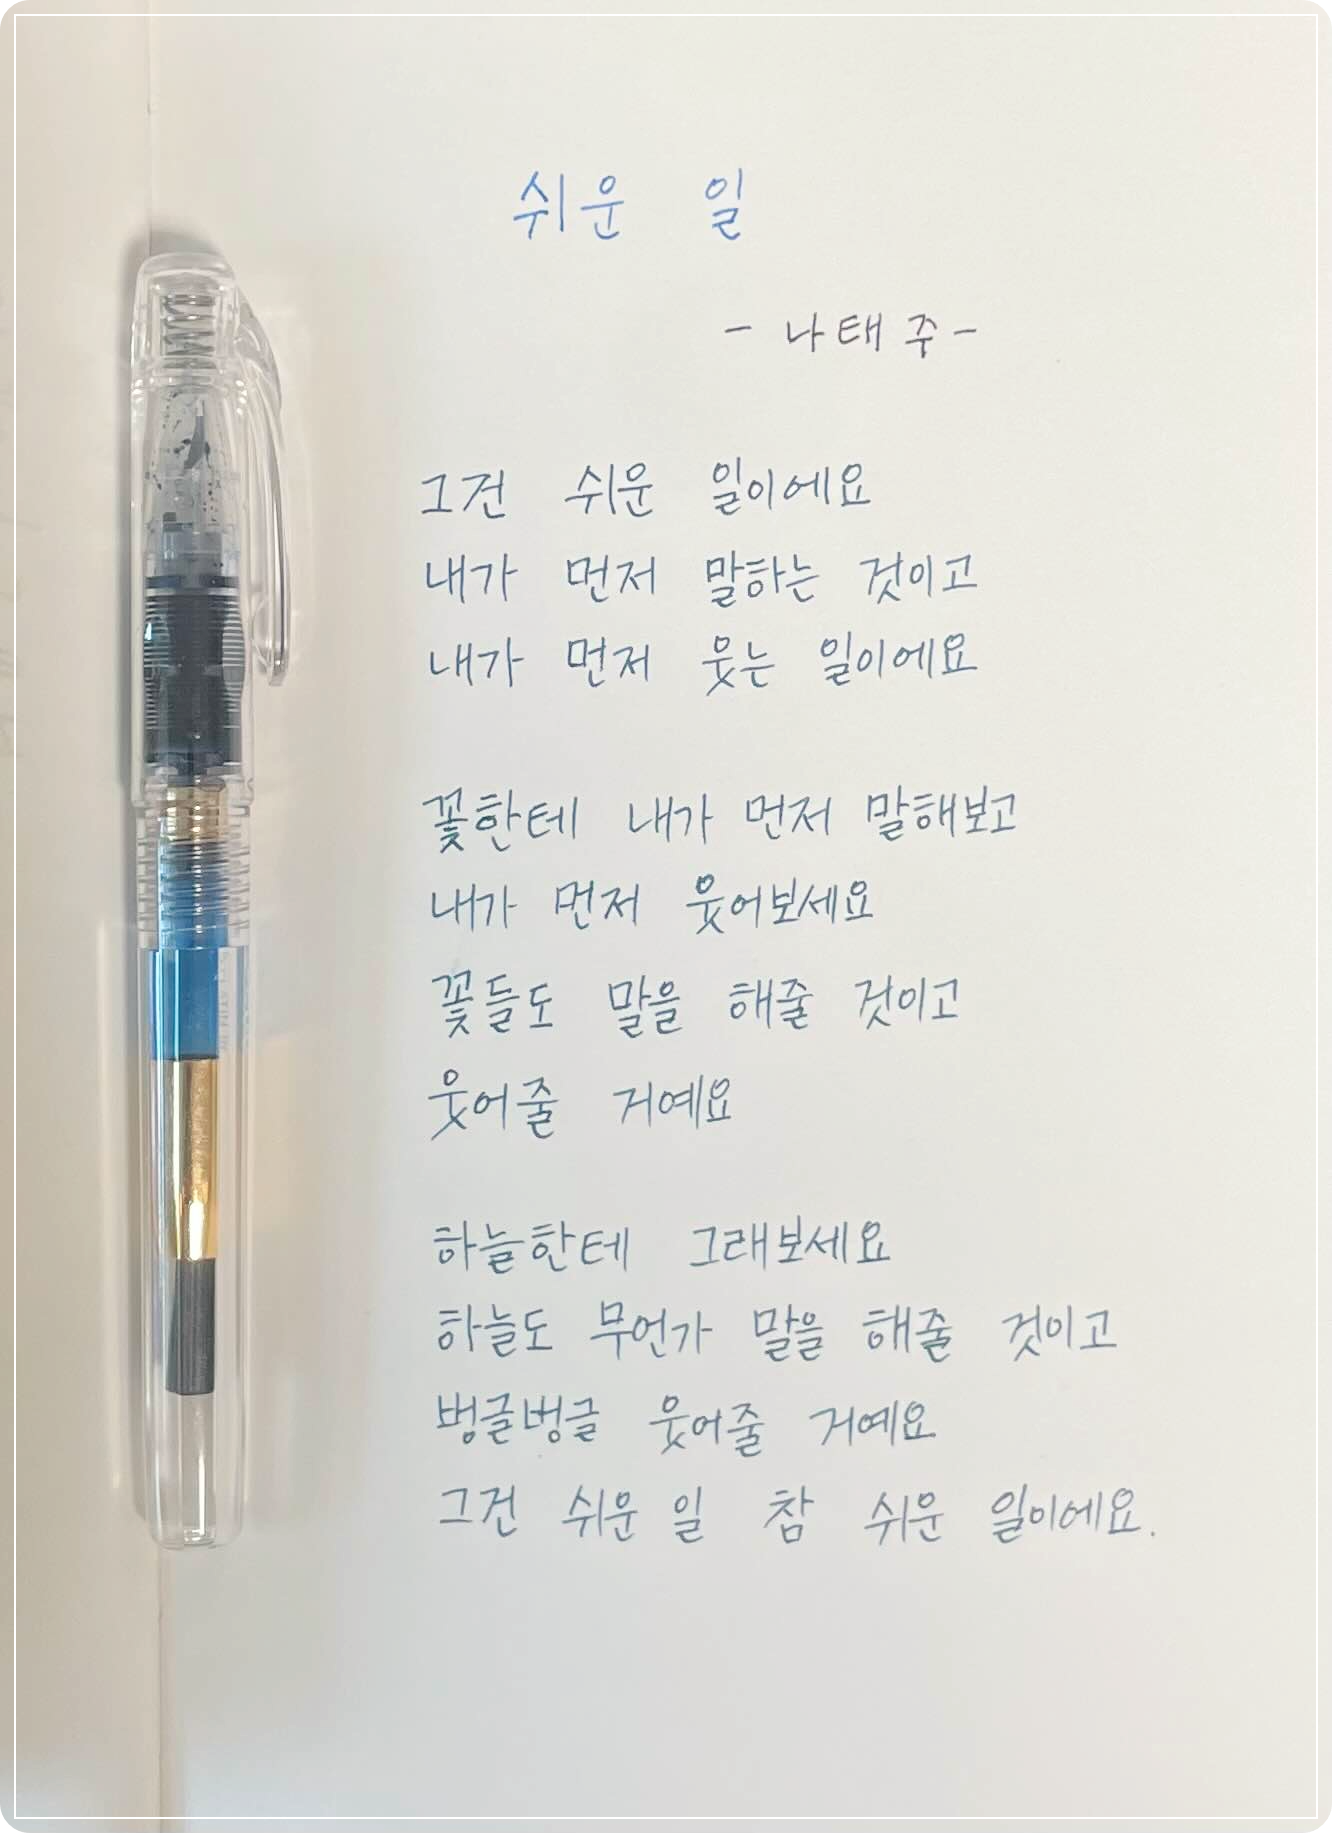 쉬운 일
- 나태주 -
그건 쉬운 일이에요
내가 먼저 말하는 것이고
내가 먼저 웃는 일이에요
꽃한테 내가 먼저 말해보고
내가 먼저 웃어보세요
꽃들도 말을 해줄 것이고
웃어줄 거예요
하늘한테 그래보세요
하늘도 무언가 말을 해줄 것이고
벙글벙글 웃어줄 거예요
그건 쉬운 일 참 쉬운 일이에요.